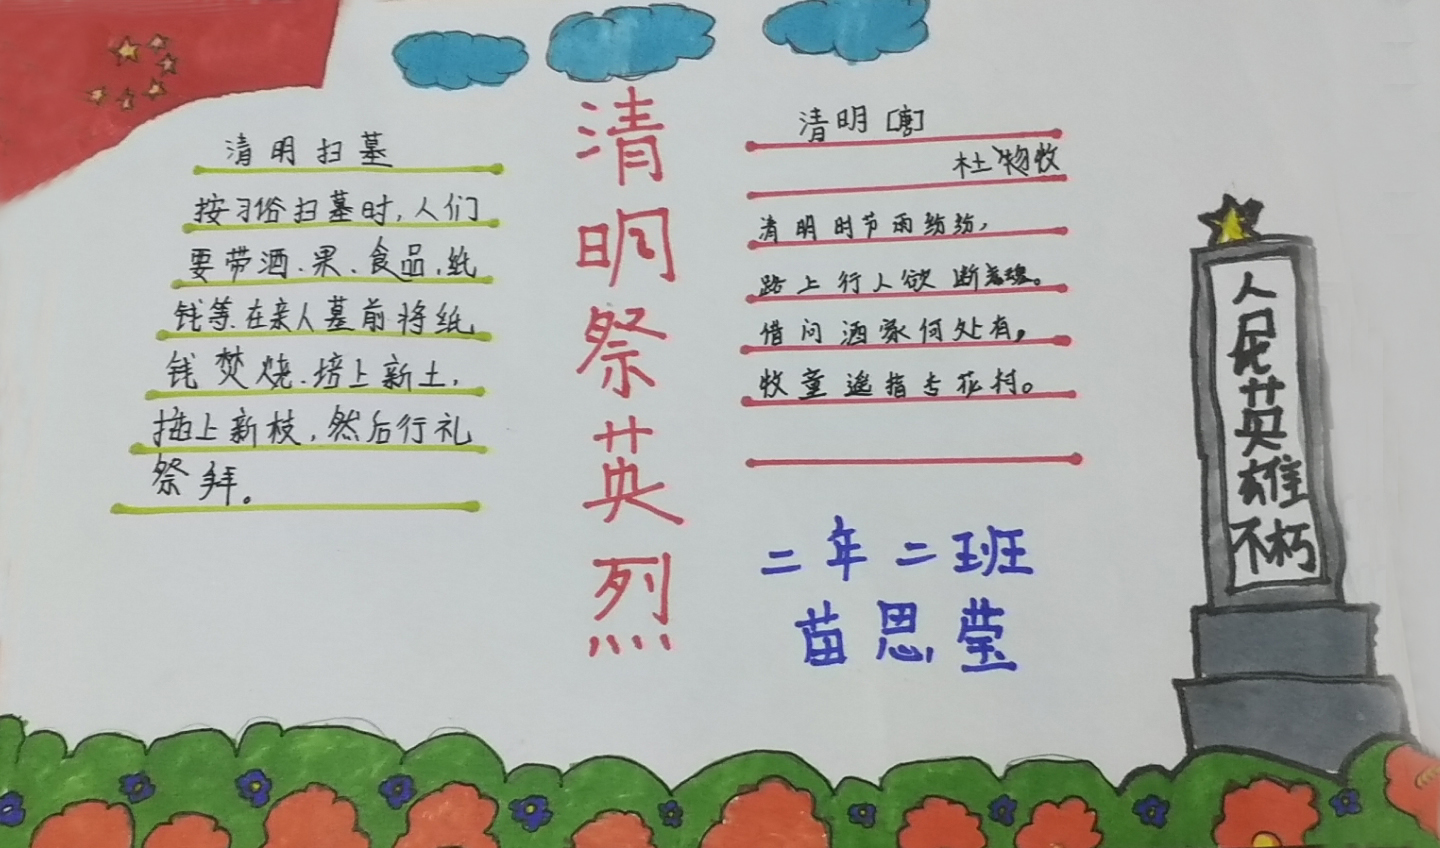 清明扫墓
按习俗扫墓时，人们
要带酒、果、食品、纸
钱等、在亲人墓前将纸
钱焚烧、培上新土，
插上新枝，然后行礼
祭拜。
清明祭英烈
清明［唐］
杜牧
清明时节雨纷纷，
路上行人欲断魂。
借问酒家何处有，
牧童遥指杏花村。
二年二班
苗思莹
人民英雄不朽